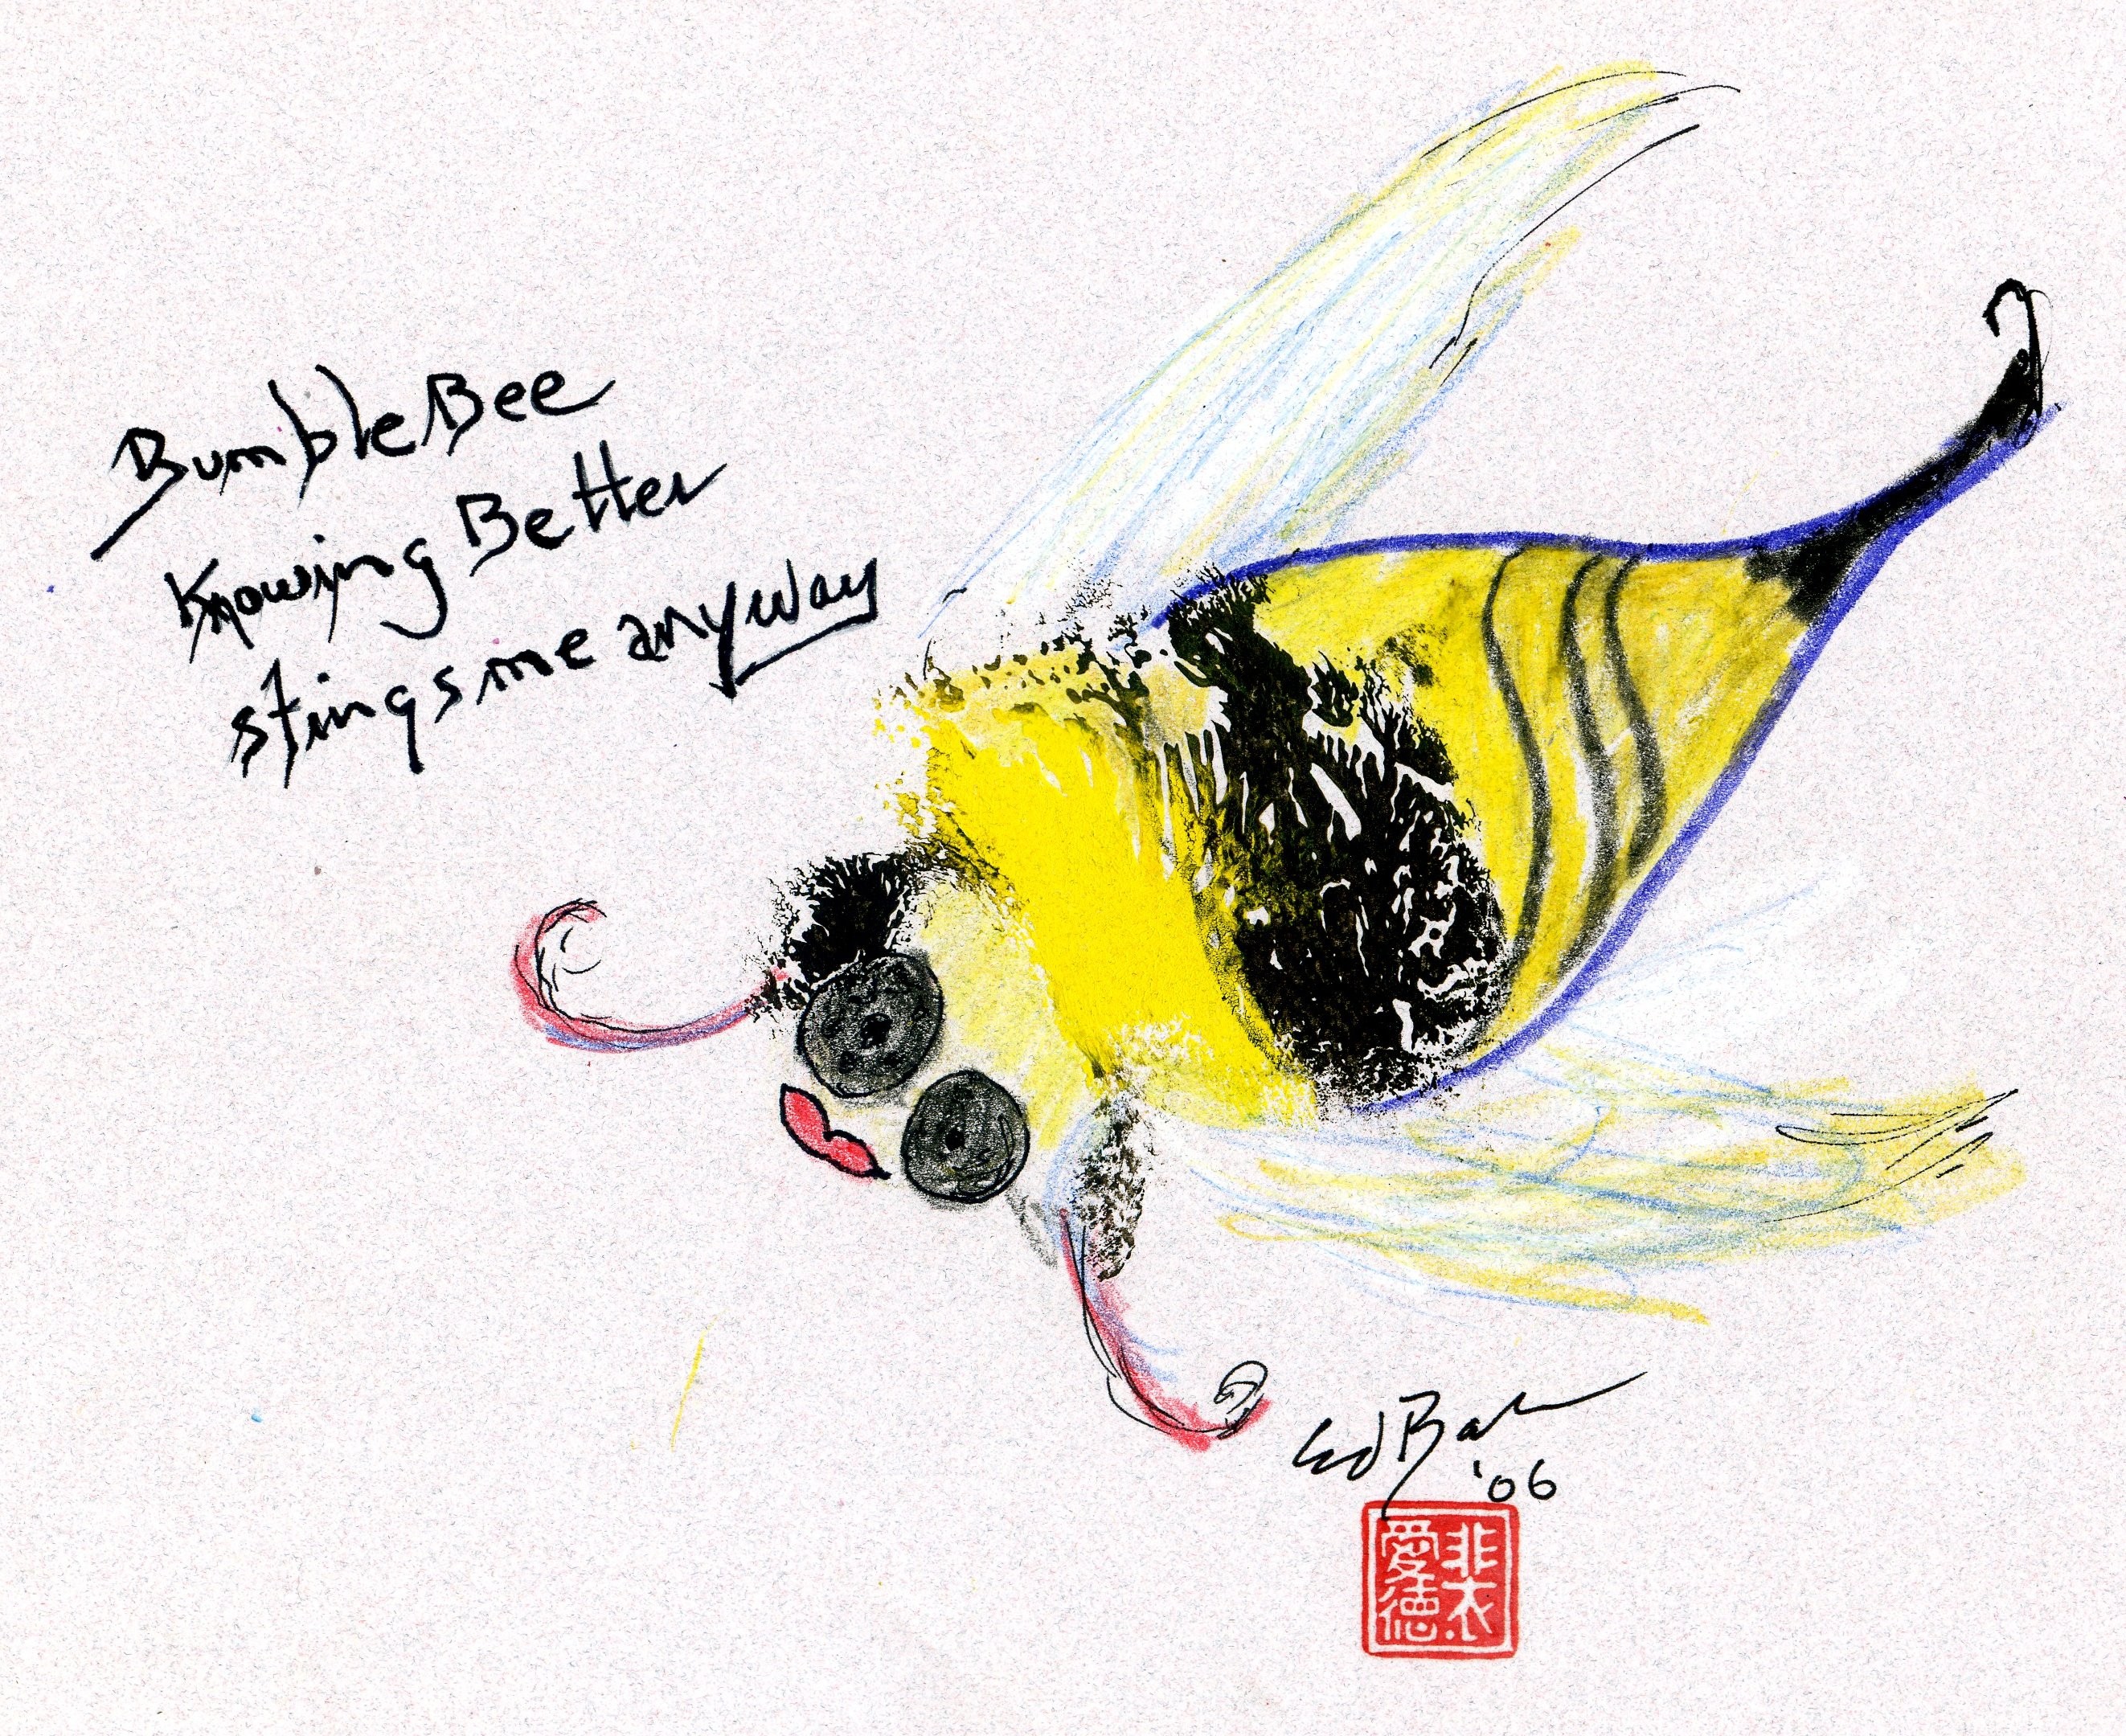 BumbleBee
Knowing Better
stings me anyway
Ed
'06
裴愛德